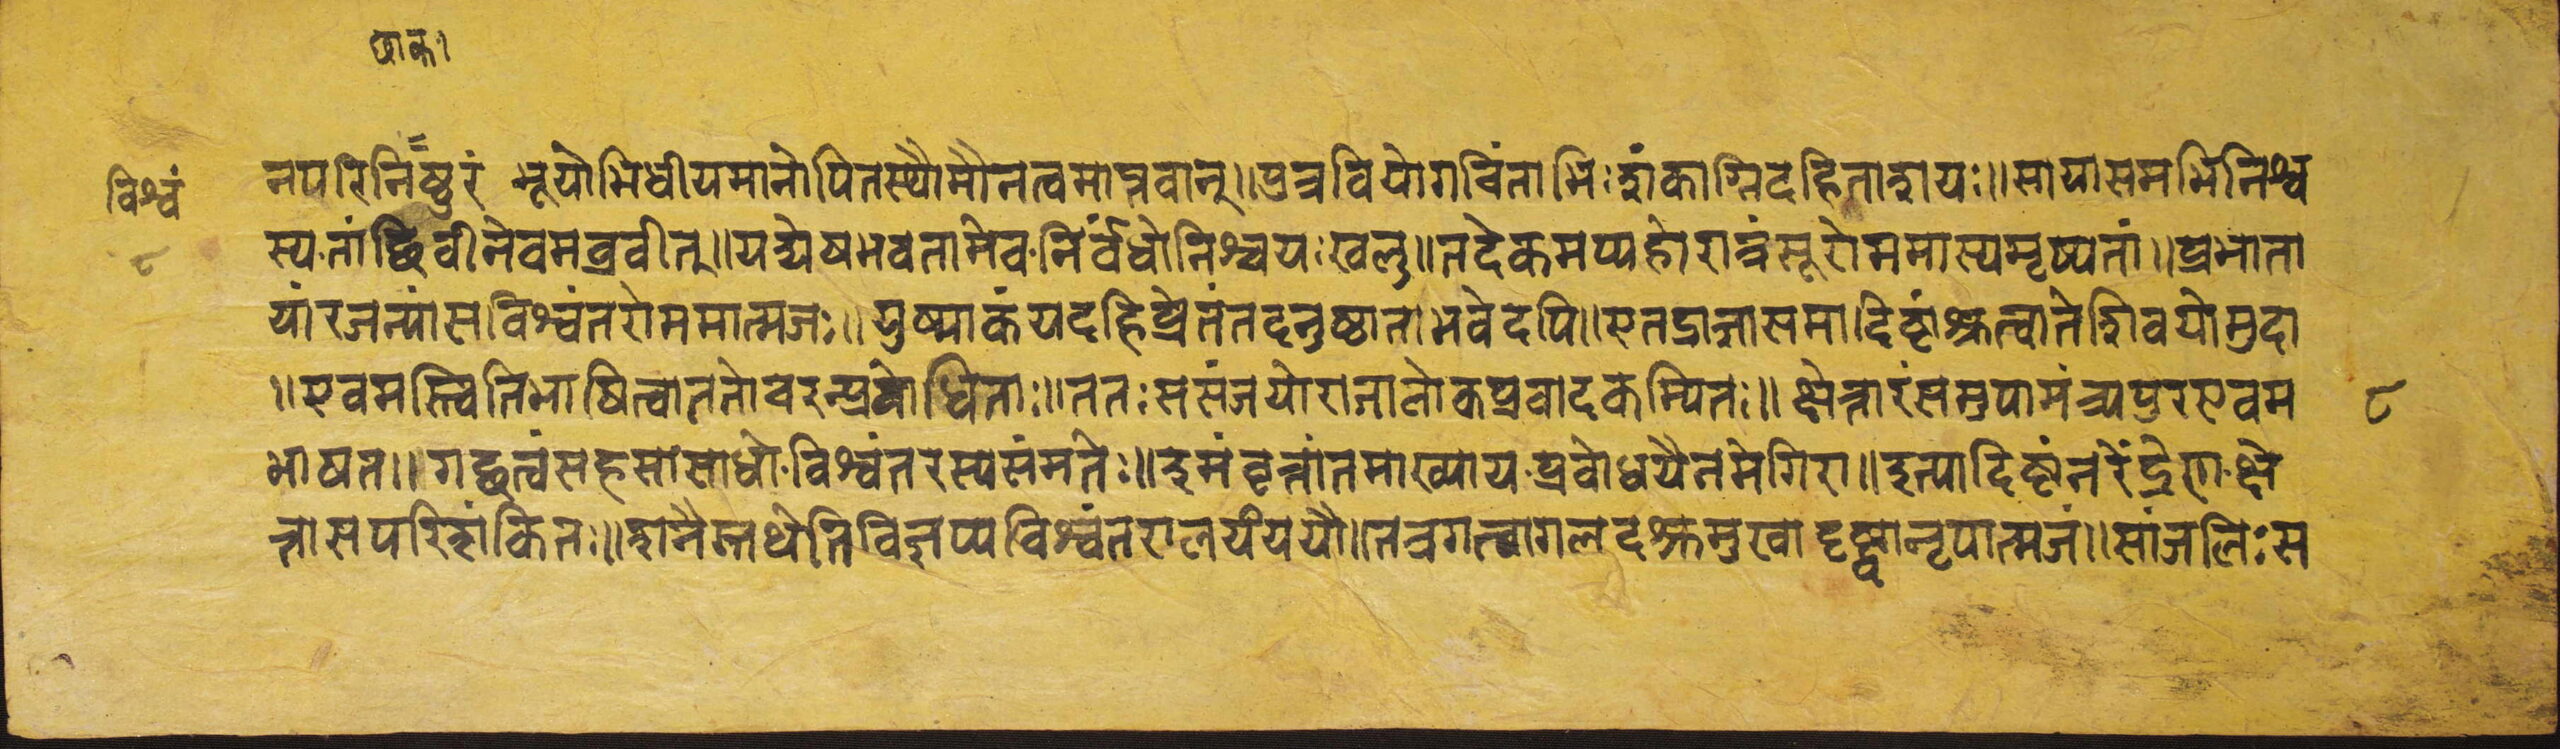 षाक।
नपरिनिष्ठुरं भूयोभिधीयमानोपितस्थौमौनत्वमाप्तवान्॥पुत्रवियोगचिंताभिःशंकाग्निदहिताशयः॥सायासमभिनिश्व
विश्वं
स्यतांछिवीनेवमब्रवीत्॥यद्येषभवतामेवनिर्वंधोनिश्चयःखलु॥तदेकमप्यहोरात्रंसूरोममास्यमृष्यतां॥प्रभाता
८
यांरजन्यांसविश्वंतरोममात्मजः॥युष्माकंयदहिप्रेतंतदनुष्ठाताभवेदपि॥एतद्राज्ञासमादिष्टंश्रुत्वातेशिवयोमुदा
॥एवमस्त्वितिभाषित्वाततोचरन्प्रवोधिताः॥ततःससंजयोराजालोकप्रवादकम्पितः॥क्षेत्तारंसमुपामंत्र्यपुरएवम
८
भाषत॥गछत्वंसहसासाधोविश्वंतरस्यसंमतेः॥इमंवृत्तांतमाख्यायप्रवोधयैनमेगिरा॥इत्यादिष्टंनरेंद्रेणक्षे
त्तासपरिशंकितः॥शनैस्तथेतिविज्ञप्यविश्वंतरालयंययौ॥तत्रगत्वागलदश्रुमुखादृष्ट्वानृपात्मजं॥सांजलिःस